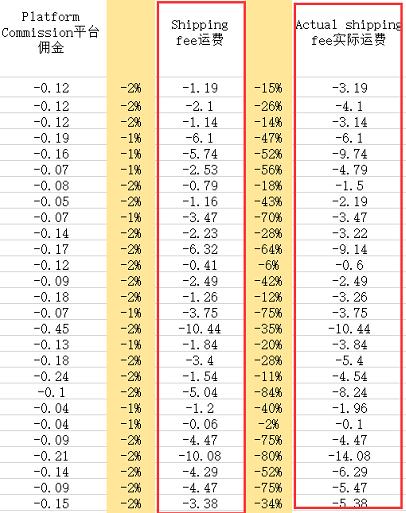 Platform
Commission平台
佣金
Shipping
fee运费
Actual shipping
fee实际运费
-0.12 -2% -1.19 -15% -3.19
-0.12 -2% -2.1 -26% -4.1
-0.12 -2% -1.14 -14% -3.14
-0.19 -1% -6.1 -47% -6.1
-0.16 -1% -5.74 -52% -9.74
-0.07 -1% -2.53 -56% -4.79
-0.08 -2% -0.79 -18% -1.5
-0.05 -2% -1.16 -43% -2.19
-0.07 -1% -3.47 -70% -3.47
-0.14 -2% -2.23 -28% -3.22
-0.17 -2% -6.32 -64% -9.14
-0.12 -2% -0.41 -6% -0.6
-0.09 -2% -2.49 -42% -2.49
-0.18 -2% -1.26 -12% -3.26
-0.07 -1% -3.75 -75% -3.75
-0.45 -2% -10.44 -35% -10.44
-0.13 -1% -1.84 -20% -3.84
-0.18 -2% -3.4 -28% -5.4
-0.24 -2% -1.54 -11% -4.54
-0.1 -2% -5.04 -84% -8.24
-0.04 -1% -1.2 -40% -1.96
-0.04 -1% -0.06 -2% -0.1
-0.09 -2% -4.47 -75% -4.47
-0.21 -2% -10.08 -80% -14.08
-0.14 -2% -4.29 -52% -6.29
-0.09 -2% -4.47 -75% -5.47
-0.15 -2% -3.38 -34% -5.38